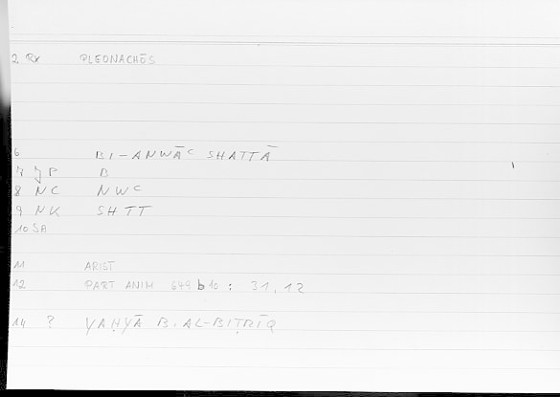 2 RX PLEONACHŌS
6 BI-ANWĀC SHATTĀ
7 JP B
8 NC NWC
9 NK SHTT
10 SA
11 ARIST
12 PART ANIM 679 b10 : 31,12
14 ? YAḤYĀ B. AL-BIṬRĪQ